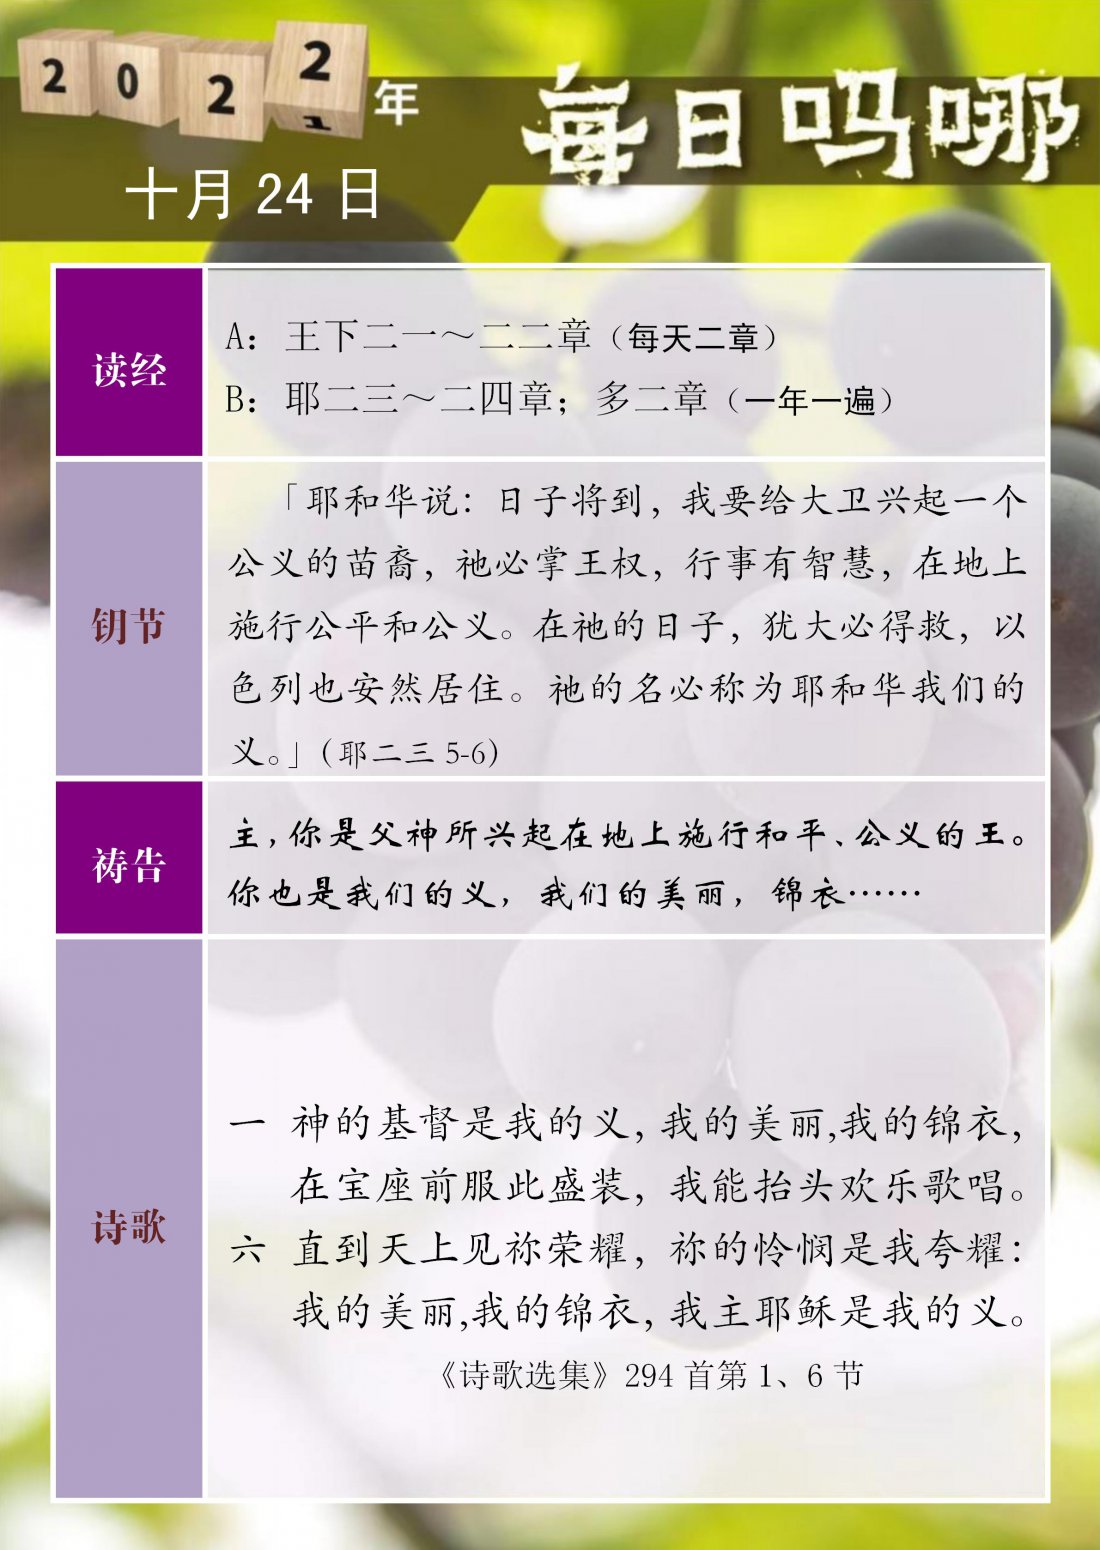 2022年
1
每日吗哪
十月 24 日
读经
A：王下二一～二二章（每天二章）
B：耶二三～二四章；多二章（一年一遍）
钥节
「耶和华说：日子将到，我要给大卫兴起一个
公义的苗裔，祂必掌王权，行事有智慧，在地上
施行公平和公义。在祂的日子，犹大必得救，以
色列也安然居住。祂的名必称为耶和华我们的
义。」（耶二三 5-6）
祷告
主，你是父神所兴起在地上施行和平、公义的王。
你也是我们的义，我们的美丽，锦衣……
诗歌
一 神的基督是我的义，我的美丽,我的锦衣，
在宝座前服此盛装，我能抬头欢乐歌唱。
六 直到天上见祢荣耀，祢的怜悯是我夸耀：
我的美丽,我的锦衣，我主耶稣是我的义。
《诗歌选集》294 首第 1、6 节